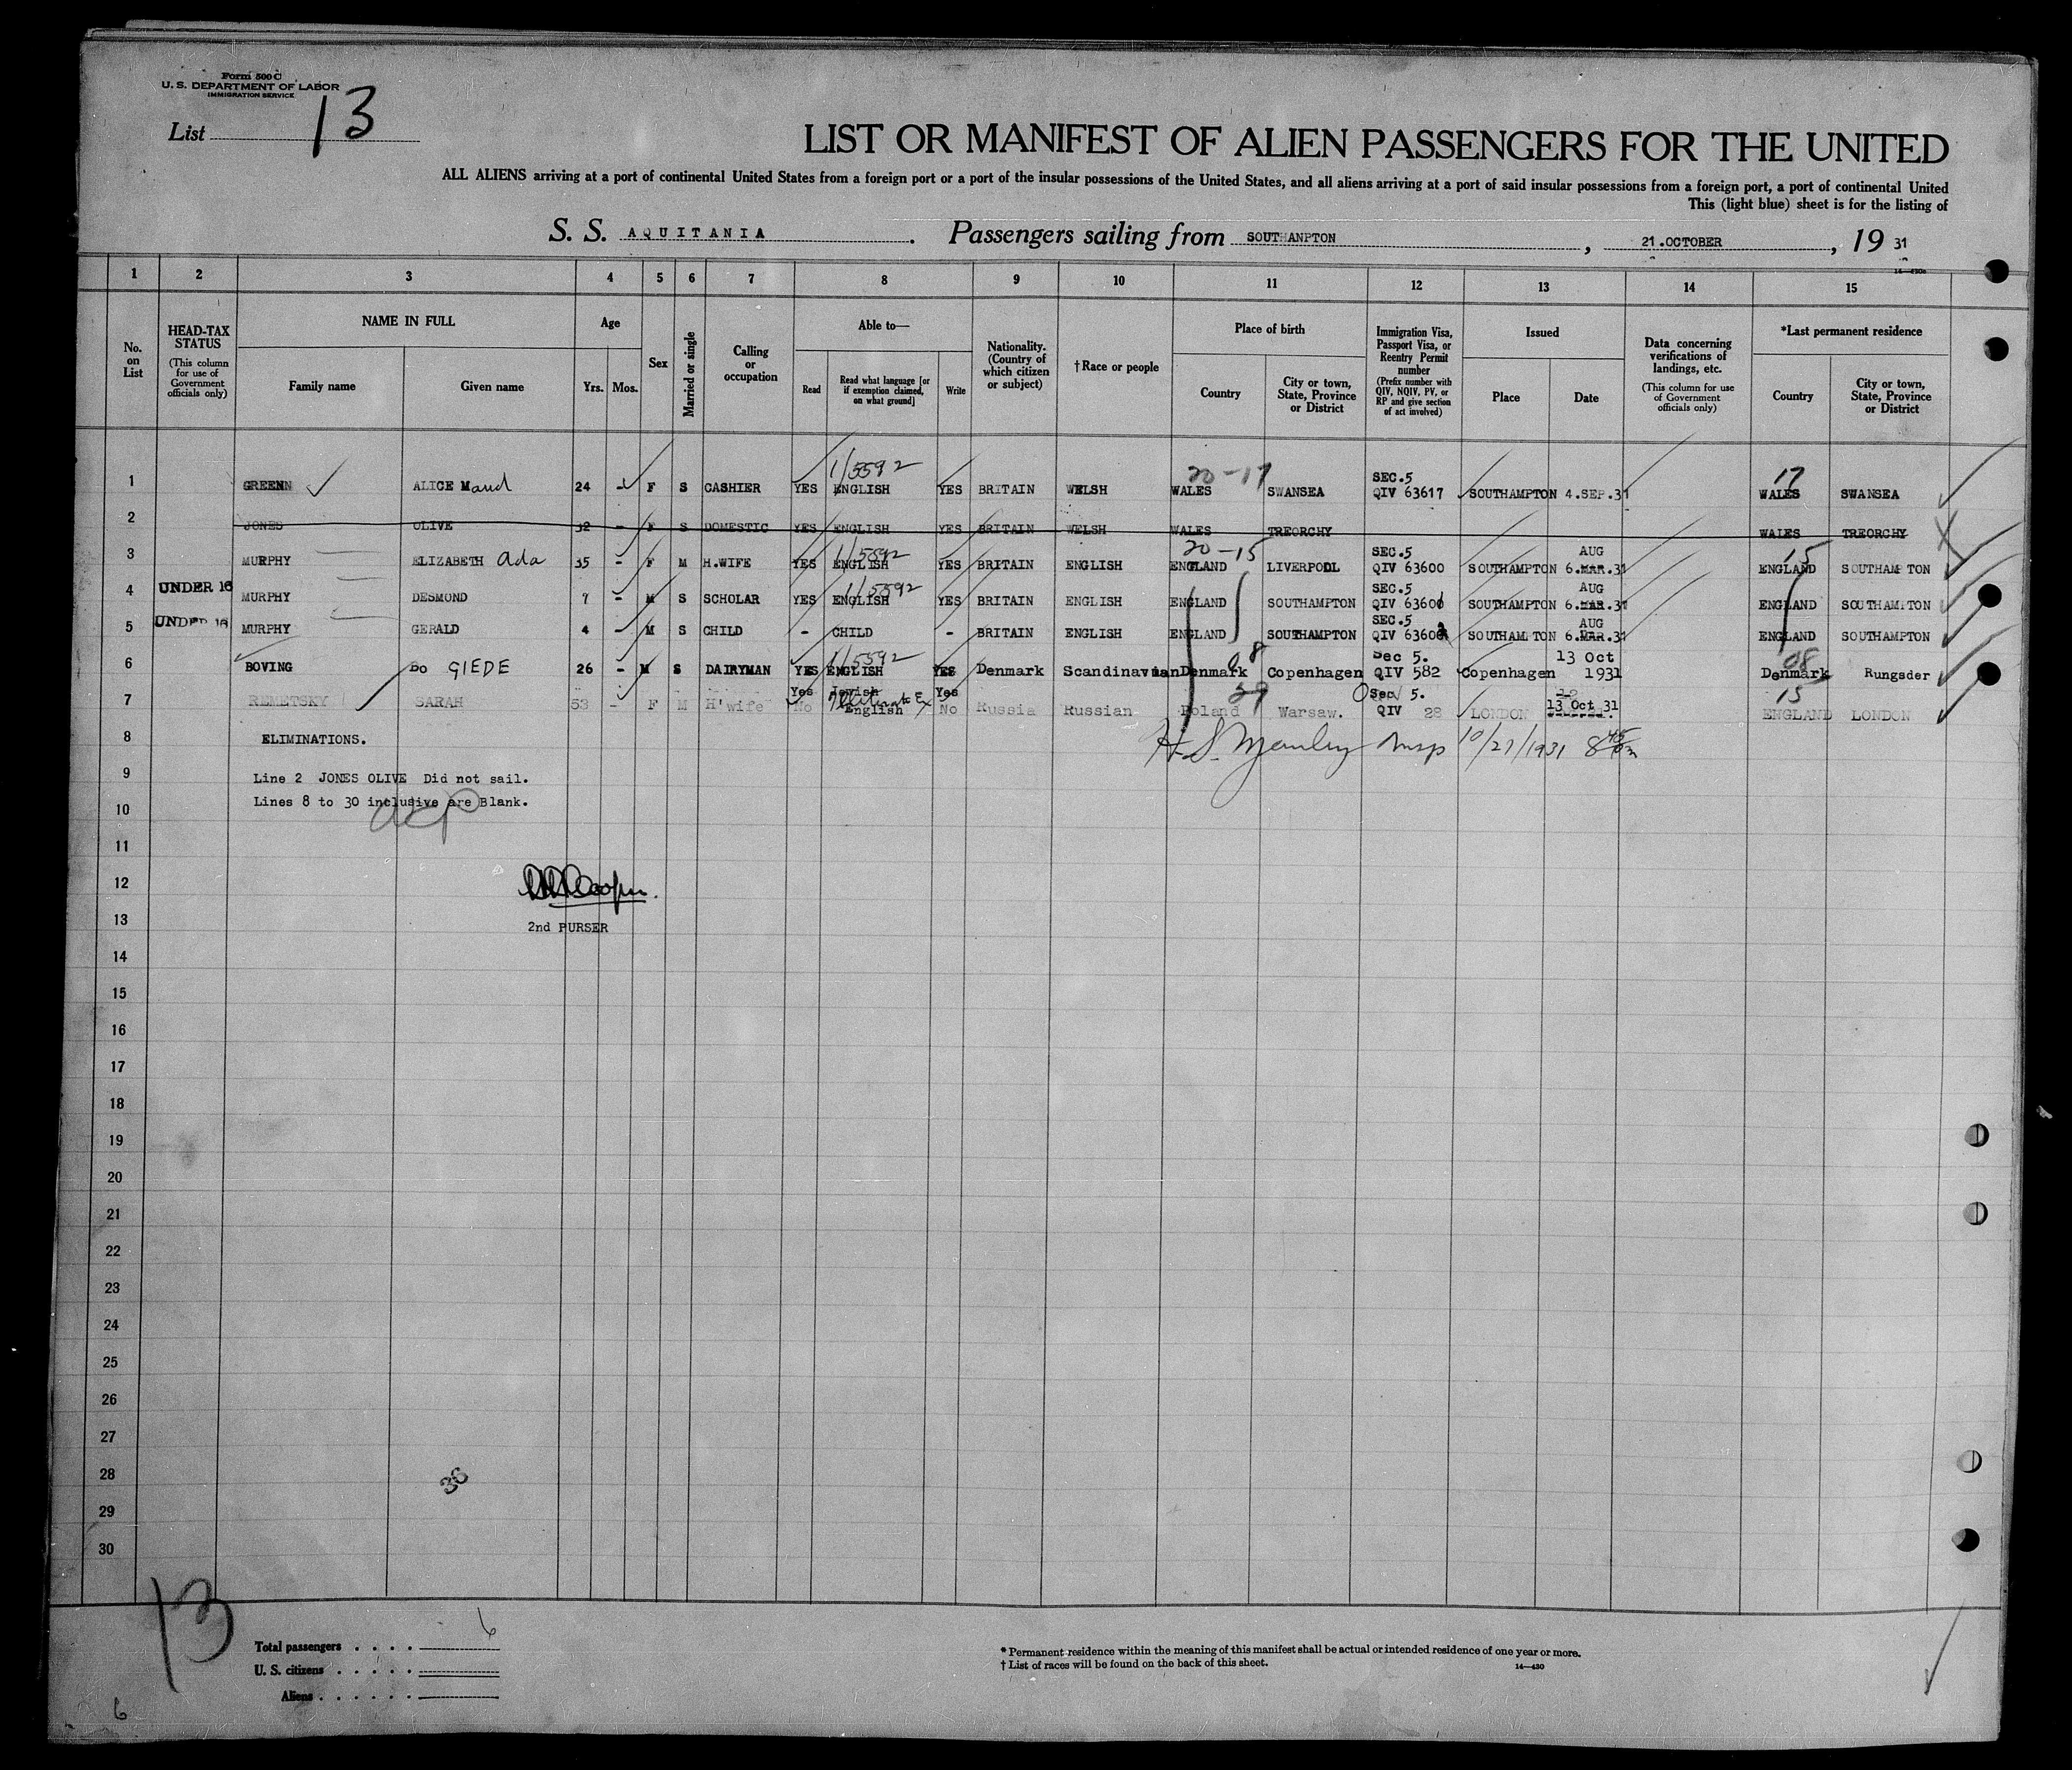 Form 500 C
U. S. DEPARTMENT OF LABOR
IMMIGRATION SERVICE
List 13
LIST OR MANIFEST OF ALIEN PASSENGERS FOR THE UNITED
ALL ALIENS arriving at a port of continental United States from a foreign port or a port of the insular possessions of the United States, and all aliens arriving at a port of said insular possessions from a foreign port, a port of continental United
This (light blue) sheet is for the listing of
S. S. AQUITANIA. Passengers sailing from SOUTHANPTON, 21.OCTOBER, 19 31
14—430a
1 2 3 4 5 6 7 8 9 10 11 12 13 14 15
No. on List
HEAD-TAX STATUS (This column for use of Government officials only)
NAME IN FULL
Family name
Given name
Age
Yrs. Mos.
Sex
Married or single
Calling or occupation
Able to—
Read
Read what language [or if exemption claimed, on what ground]
Write
Nationality. (Country of which citizen or subject)
†Race or people
Place of birth
Country
City or town, State, Province or District
Immigration Visa, Passport Visa, or Reentry Permit number (Prefix number with QIV, NQIV, PV, or RP and give section of act involved)
Issued
Place
Date
Data concerning verifications of landings, etc. (This column for use of Government officials only)
*Last permanent residence
Country
City or town, State, Province or District
1/5592 20-17 SEC.5 17
1 GREENN ALICE Maud 24 - F S CASHIER YES ENGLISH YES BRITAIN WELSH WALES SWANSEA QIV 63617 SOUTHAMPTON 4.SEP.31 WALES SWANSEA
2 JONES OLIVE 32 - F S DOMESTIC YES ENGLISH YES BRITAIN WELSH WALES TREORCHY WALES TREORCHY
1/5592 20-15 SEC.5 AUG 15
3 MURPHY ELIZABETH Ada 35 - F M H.WIFE YES ENGLISH YES BRITAIN ENGLISH ENGLAND LIVERPOOL QIV 63600 SOUTHAMPTON 6.MAR.31 ENGLAND SOUTHAMPTON
1/5592 SEC.5 AUG
4 UNDER 16 MURPHY DESMOND 7 - M S SCHOLAR YES ENGLISH YES BRITAIN ENGLISH ENGLAND SOUTHAMPTON QIV 63601 SOUTHAMPTON 6.MAR.31 ENGLAND SOUTHAMPTON
SEC.5 AUG
5 UNDER 16 MURPHY GERALD 4 - M S CHILD - CHILD - BRITAIN ENGLISH ENGLAND SOUTHAMPTON QIV 63602 SOUTHAMPTON 6.MAR.31 ENGLAND SOUTHAMPTON
1/5592 08 Sec 5. 13 Oct 08
6 BOVING Bo GIEDE 26 - M S DAIRYMAN YES ENGLISH YES Denmark Scandinavian Denmark Copenhagen QIV 582 Copenhagen 1931 Denmark Rungsder
Yes Jewish Yes 39 Sec 5. 15
7 REMETSKY SARAH 53 - F M H'wife No English No Russia Russian Poland Warsaw. QIV 28 LONDON 13 Oct 31 ENGLAND LONDON
8 ELIMINATIONS. 10/27/1931 8 45
9 Line 2 JONES OLIVE Did not sail.
10 Lines 8 to 30 inclusive are Blank.
11
12
13 2nd PURSER
14
15
16
17
18
19
20
21
22
23
24
25
26
27
28 36
29
30
13
Total passengers . . . . 6
U. S. citizens . . . . .
Aliens . . . . . .
* Permanent residence within the meaning of this manifest shall be actual or intended residence of one year or more.
† List of races will be found on the back of this sheet.
14—430
6